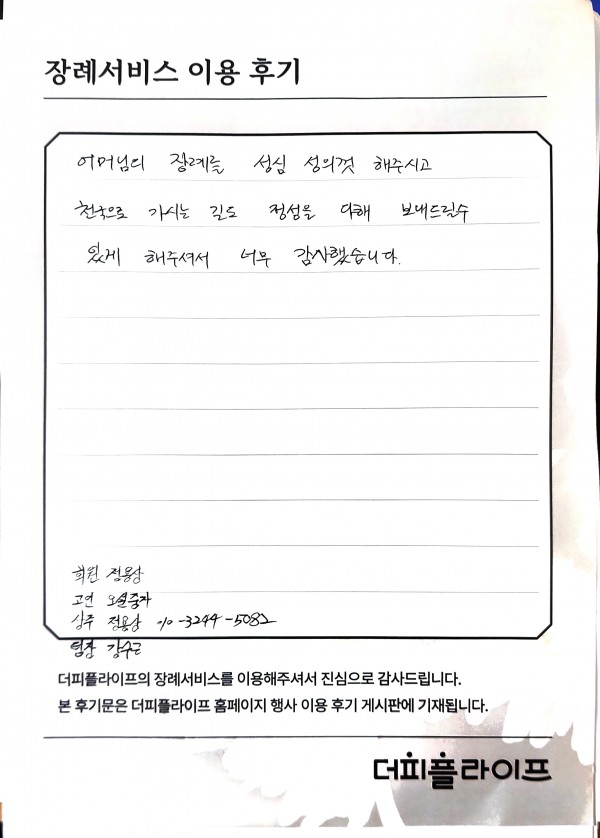 장례서비스 이용 후기
어머님의 장례를 성심 성의껏 해주시고
천국으로 가시는 길도 정성을 다해 보내드릴수
있게 해주셔서 너무 감사했습니다.
회원 정용상
고연
상주 정용상 010-3244-5082
팀장 강수근
더피플라이프의 장례서비스를 이용해주셔서 진심으로 감사드립니다.
본 후기문은 더피플라이프 홈페이지 행사 이용 후기 게시판에 기재됩니다.
더피플라이프